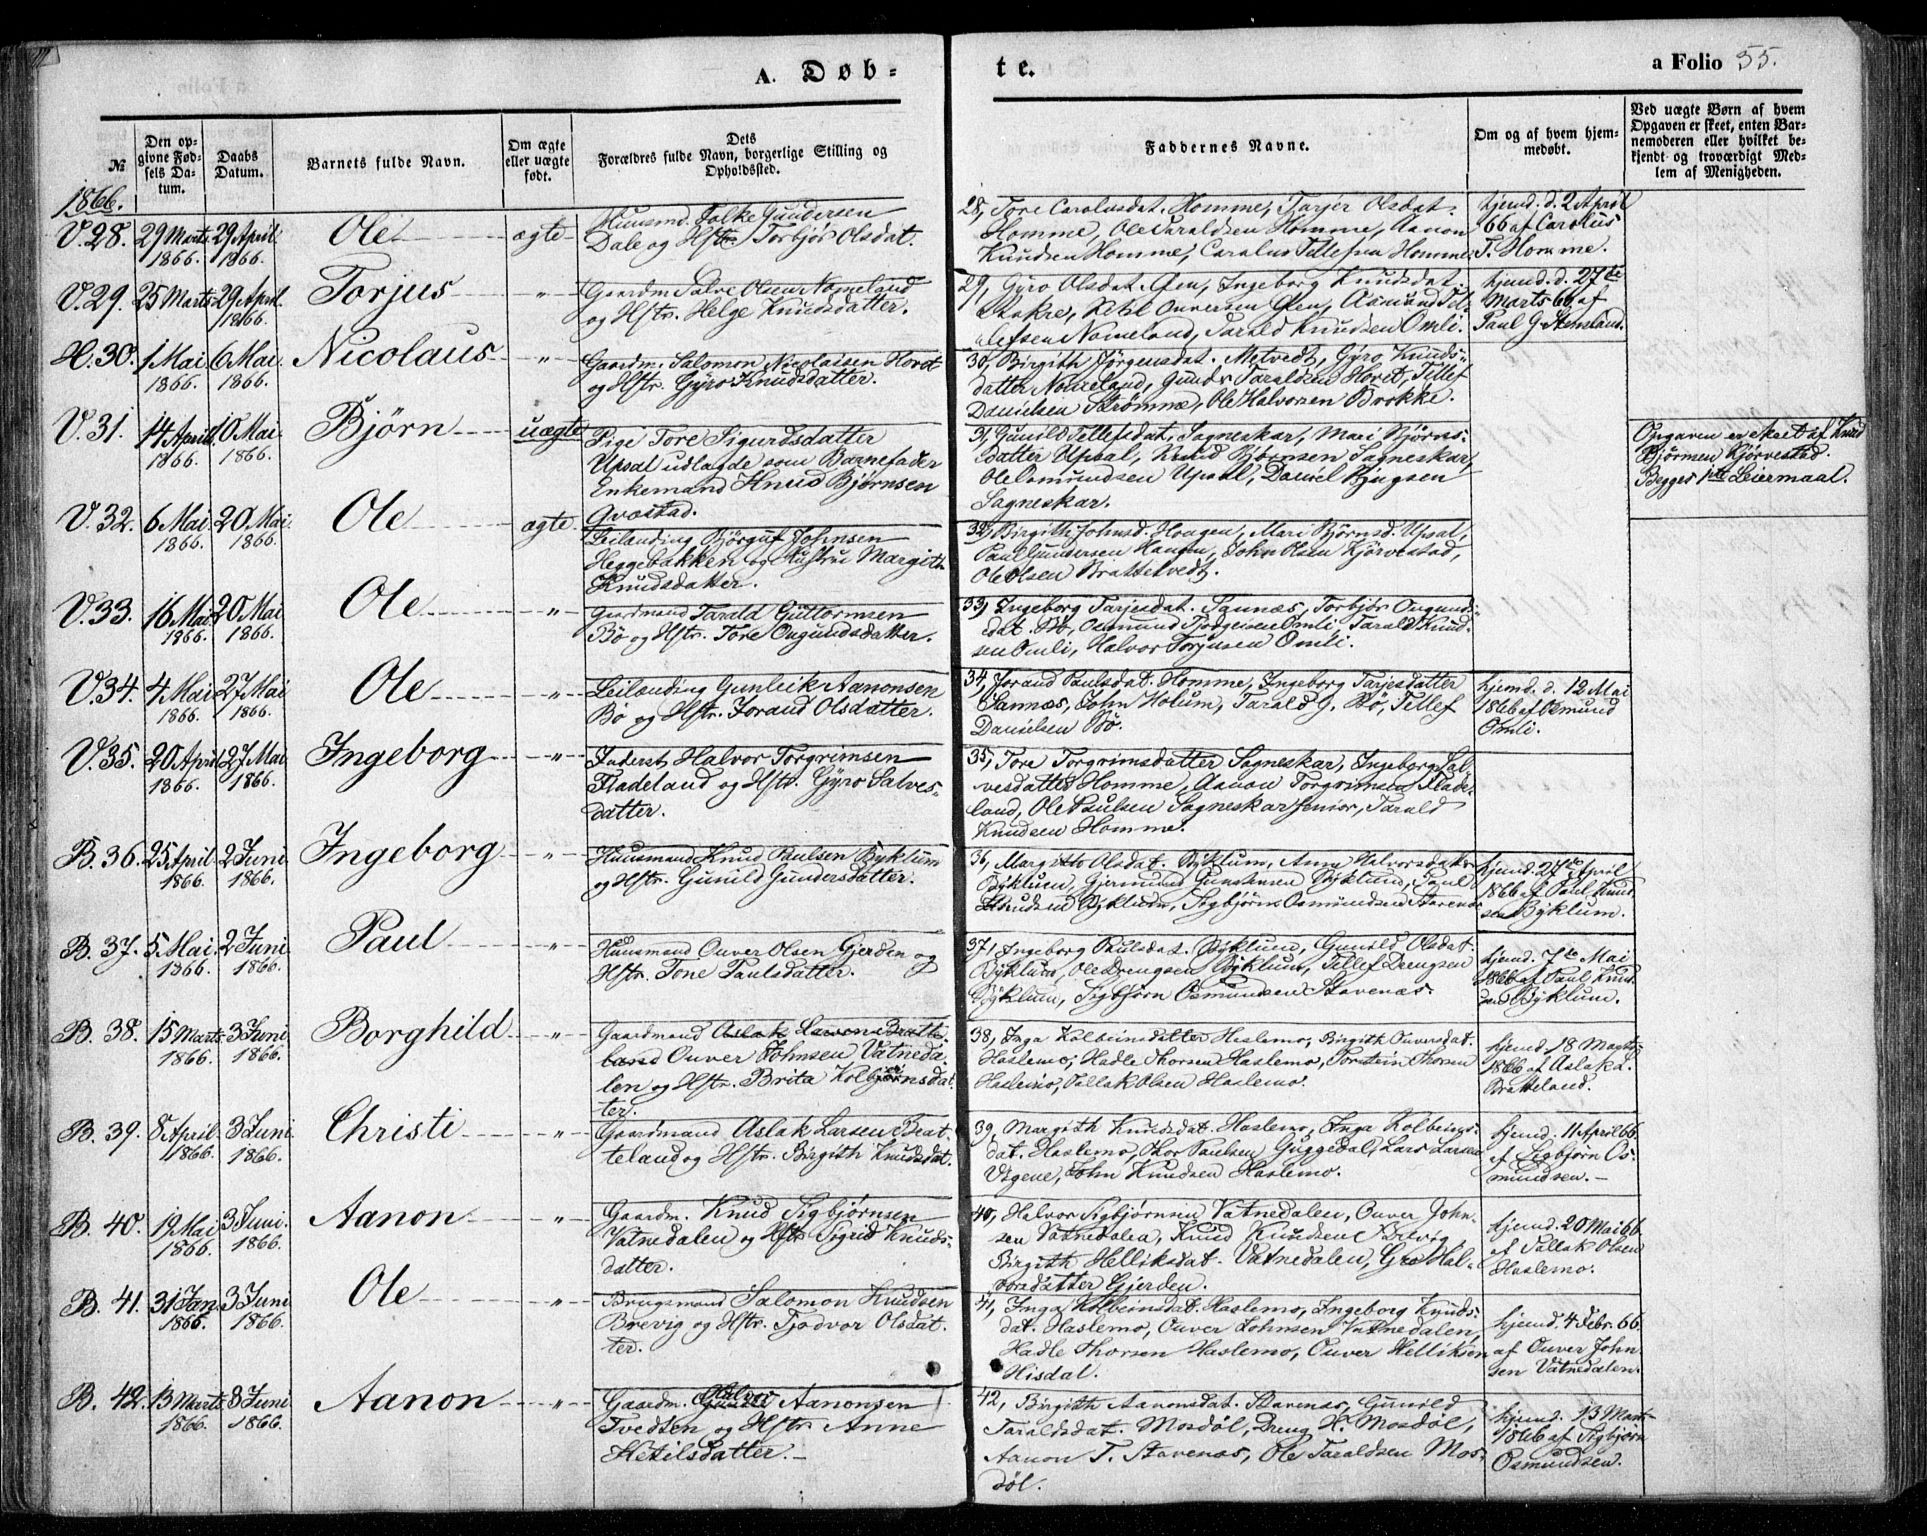 A. Døb-
№
Den op-
givne Fød-
sels Da-
tum.
Daabs
Datum.
Barnets fulde Navn.
Om ægte
eller uægte
født.
Dets
Forældres fulde Navn, borgerlige Stilling og
Opholdssted.
1866.
V. 28. 29 Marts 1866. 29 April 1866. Ole ægte
Huusmd. Folke Gundersen
Dale og Hstr. Torbjør Olsdat.
V. 29. 25 Marts 29 April 1866. Torjus "
Gaardm. Salve Olsen Nomeland
og Hstr. Helge Knudsdatter.
H. 30. 1 Mai 1866. 6 Mai 1866. Nicolaus "
Gaardm. Salomon Nicolaisen Hovet
og Hstr. Gyro Knudsdatter.
V. 31. 14 April 1866. 10 Mai 1866. Bjørn uægte
Pige Tore Sigurdsdatter
Upsal udlagde som Barnefader
Enkemand Knud Bjørnsen
V. 32. 6 Mai 1866. 20 Mai 1866. Ole ægte
Leilænding Bjørguf Johnsen
Heggebakken og Hustru Margith
Knudsdatter.
V. 33. 16 Mai 1866. 20 Mai 1866. Ole "
Gaardmand Tarald Guttormsen
Bø og Hstr. Tore Ongundsdatter.
V. 34. 4 Mai 1866. 27 Mai 1866. Ole "
Leilænding Gunleik Aanonsen
Bø og Hstr. Jorand Olsdatter.
V. 35. 20 April 1866. 27 Mai 1866. Ingeborg "
Inderst Halvor Torgrimsen
Fladeland og Hstr. Gyro Salves-
datter.
B. 36. 25 April 1866. 2 Juni 1866. Ingeborg "
Huusmand Knud Paulsen Byklum
og Hstr. Gunild Gundersdatter.
B. 37. 5 Mai 1866. 2 Juni 1866. Paul "
Huusmand Ouver Olsen Gjerden og
Hstr. Tone Paulsdatter.
B. 38. 15 Marts 1866. 3 Juni 1866. Borghild "
Gaardmand Aslak Larsen Bratte-
land Ouver Johnsen Vatneda-
len og Hstr. Brita Kolbjørnsdat-
ter.
B. 39. 8 April 1866. 3 Juni 1866. Christi "
Gaardmand Aslak Larsen Brat-
teland og Hstr. Birgith Knudsdat.
B. 40. 19 Mai 1866. 3 Juni 1866. Aanon "
Gaardm. Knud Sigbjørnsen
Vatnedalen og Hstr. Sigrid Knuds-
datter.
B. 41. 31 Jan 1866. 3 Juni 1866. Ole "
Brugsmand Salomon Knudsen
Brevig og Hstr. Tjodvor Olsdat-
ter.
B. 42. 13 Marts 1866. 3 Juni 1866. Aanon "
Gaardm. Halvor Aanonsen
Tvedten og Hstr. Anne
Ketilsdatter.
te.
a Folio 55.
Faddernes Navne.
Om og af hvem hjem-
medøbt.
Ved uægte Børn af hvem
Opgaven er skeet, enten Bar-
nemoderen eller hvilket be-
kjendt og troværdigt Med-
lem af Menigheden.
28, Tore Carolusdat. Homme, Tarjer Olsdat.
Homme, Ole Taraldsen Homme, Aanon
Knudsen Homme, Carolus Tellefsen Homme.
hjemd. d. 2 April
66 af Carolus
T. Homme.
29, Gyro Olsdat. Øen, Ingeborg Knudsdat.
Ketil Ouversen Øen, Asmund Tel-
lefsen Nomeland, Tarald Knudsen Omli.
hjemd. d. 27te
Marts 66 af
Paul G.
30, Birgith Jørgensdat. Metvedt, Gyro Knuds-
datter Nomeland, Gunder Taraldsen Hovet, Tellef
Danielsen Strømme, Ole Halvorsen Brokke.
31, Gunild Tellefsdat. Sagneskar, Mari Bjørns-
datter Upsal, Knud Bjørnsen Sagneskar,
Ole Osmundsen Upsal, Daniel
Sagneskar.
Opgaven er skeet af Knud
Bjørnsen Kjørvestad.
Begges 1ste Leiermaal.
32, Birgith Johnsd. Haugen, Mari Bjørnsd. Upsal,
Paul Gundersen Haugen, John Olsen Kjørvestad,
Ole Olsen Brattetvedt.
33, Ingeborg Tarjesdat. Sannæs, Torbjør Ongunds-
dat. Bø, Osmund Tjodgeirsen Omli, Tarald Knud-
sen Omli, Halvor Torjusen Omli.
34, Jorand Paulsdat. Homme, Ingeborg Tarjesdatter
Sannæs, John Holum, Tarald G. Bø, Tellef
Danielsen Bø.
hjemd. d. 12 Mai
1866 af Osmund
Omli.
35, Tore Torgrimsdatter Sagneskar, Ingeborg Sal-
vesdatter Homme, Aanon Torgrimsen Flade-
land, Ole Paulsen Sagneskar senior, Tarald
Knudsen Homme.
36, Margitto Olsdat. Byklum, Anne Halvorsdat.
Byklum, Gjermund Gunstensen Byklum, Paul
Knudsen Byklum, Sigbjørn Osmundsen Stavenæs.
hjemd. 27de April
1866 af Paul Knud-
sen Byklum.
37, Ingeborg Paulsdat. Byklum, Gunild Olsdat.
Byklum, Ole Drengsen Byklum, Tellef Drengsen
Byklum, Sigbjørn Osmundsen Stavenæs.
hjemd. 7de Mai
1866 af Paul Knud-
sen Byklum.
38, Inga Kolbeinsdatter Haslemo, Birgith Ouversdat.
Haslemo, Hadle Thorsen Haslemo, Torstein Thorsen
Haslemo, Tallak Olsen Haslemo.
hjemd. 18 Marts
1866 af Aslak L.
Bratteland.
39, Margith Knudsdat. Haslemo, Inga Kolbeins-
dat. Haslemo, Thor Paulsen Guggedal, Lars Larsen
John Knudsen Haslemo.
hjemd. 11 April 66
af Sigbjørn Os-
mundsen.
40, Halvor Sigbjørnsen Vatnedalen, Ouver John-
sen Vatnedalen, Knud Knudsen Brevig,
Birgith Helliksdat. Vatnedalen, Gro Hal-
vorsdatter Gjerden.
hjemd. 20 Mai 66
af Tallak Olsen
Haslemo.
41, Inga Kolbeinsdat. Haslemo, Ingeborg Knuds-
dat. Haslemo, Ouver Johnsen Vatnedalen,
Hadle Thorsen Haslemo, Ouver Helliksen
Hisdal.
hjemd. 4 Febr. 66.
af Ouver John-
sen Vatnedalen.
42, Birgith Aanonsdat. Stavenæs, Gunild
Taraldsdat. Mosdøl, Dreng H. Mosdøl,
Aanon T. Stavenæs, Ole Taraldsen Mos-
døl.
hjemd. 13 Marts
1866 af Sigbjørn
Osmundsen.